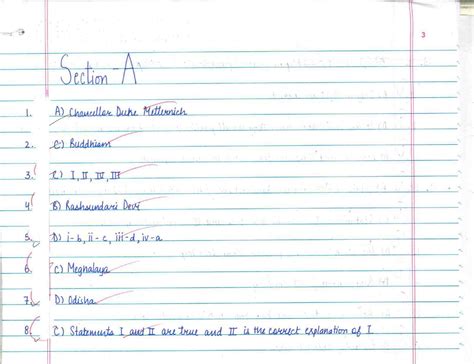 3
Section-A
1. A) Chancellor Duke Metternich
2. C) Buddhism
3. C) I, II, IV, III
4. B) Rashsundari Devi
5. D) i-b, ii-c, iii-d, iv-a
6. C) Meghalaya
7. D) Odisha
8. C) Statements I and II are true and II is the correct explanation of I.